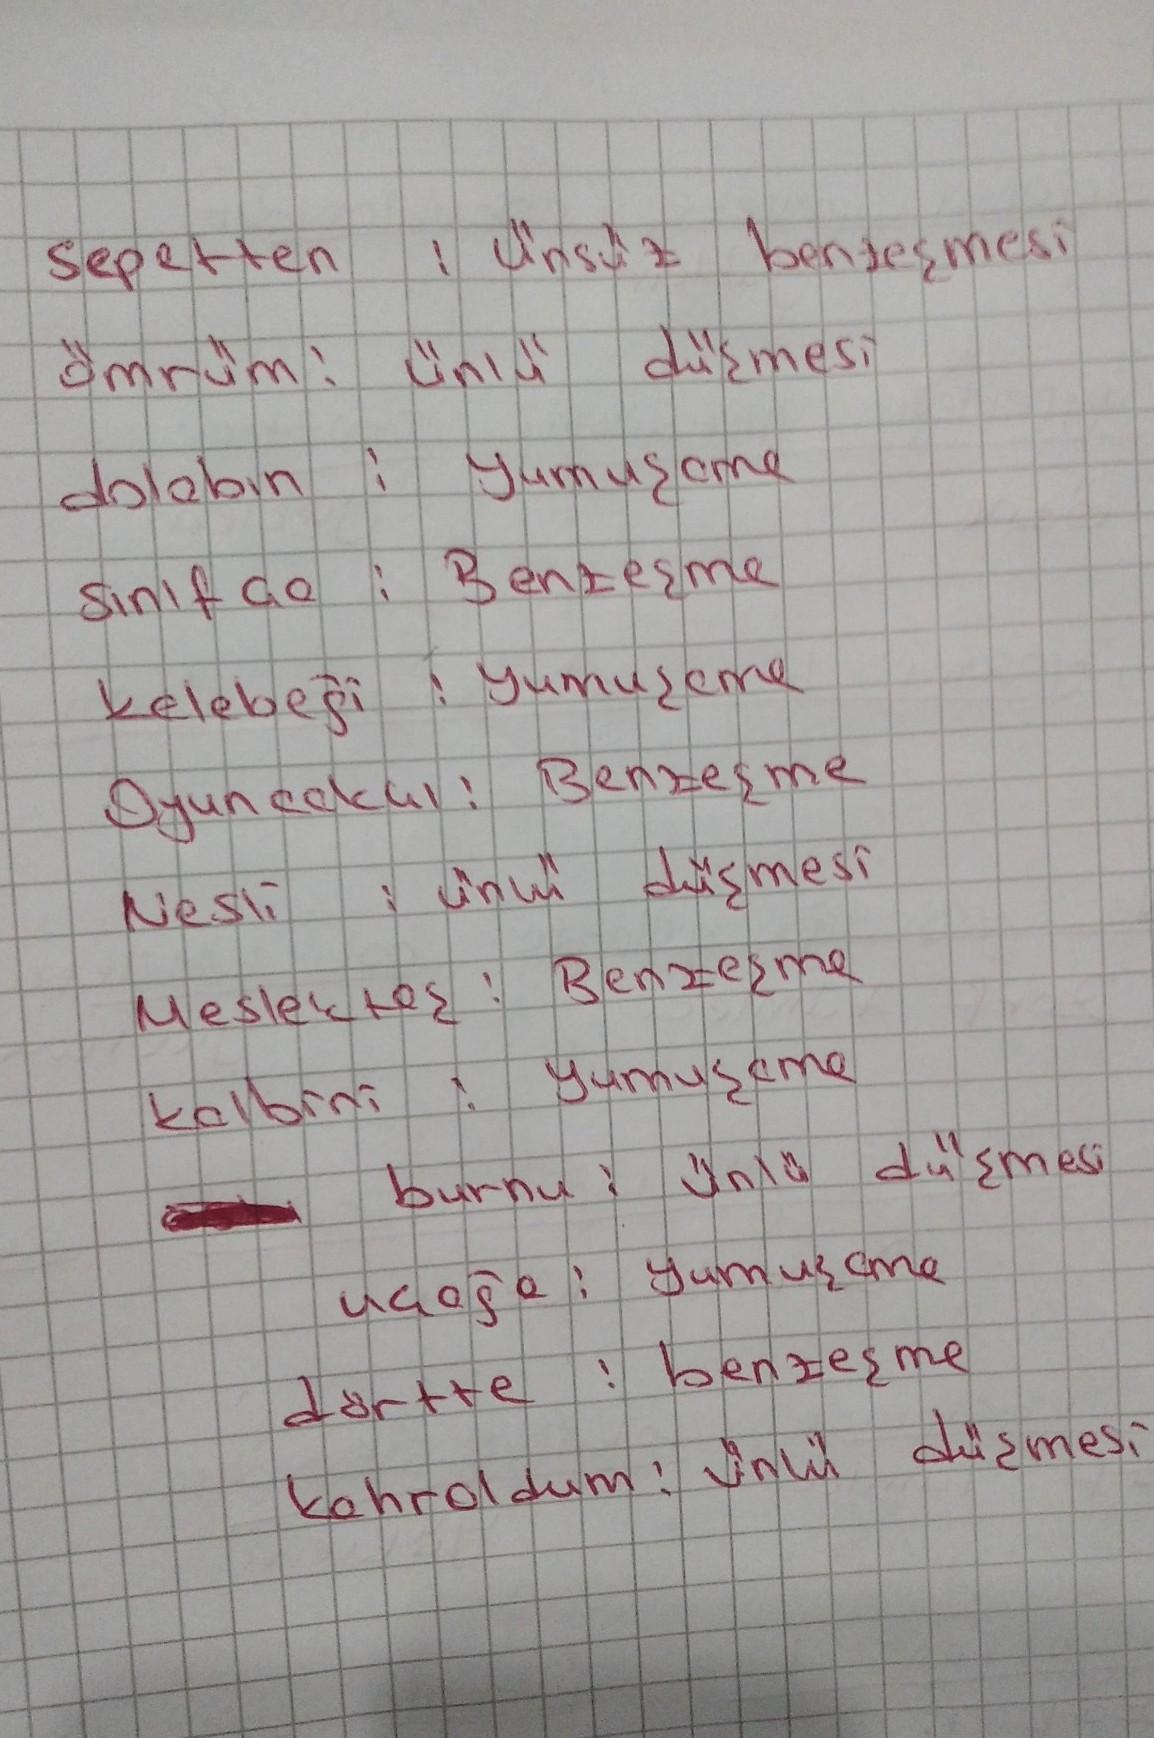 Sepetten : Ünsüz benzeşmesi
Ömrüm : ünlü düşmesi
dolabın : yumuşama
Sınıfda : Benzeşme
kelebeği : yumuşama
: Benzeşme
Nesli : ünlü düşmesi
Meslektaş : Benzeşme
kalbini : yumuşama
burnu : ünlü düşmesi
ucağa : yumuşama
dörtte : benzeşme
kahroldum : ünlü düşmesi